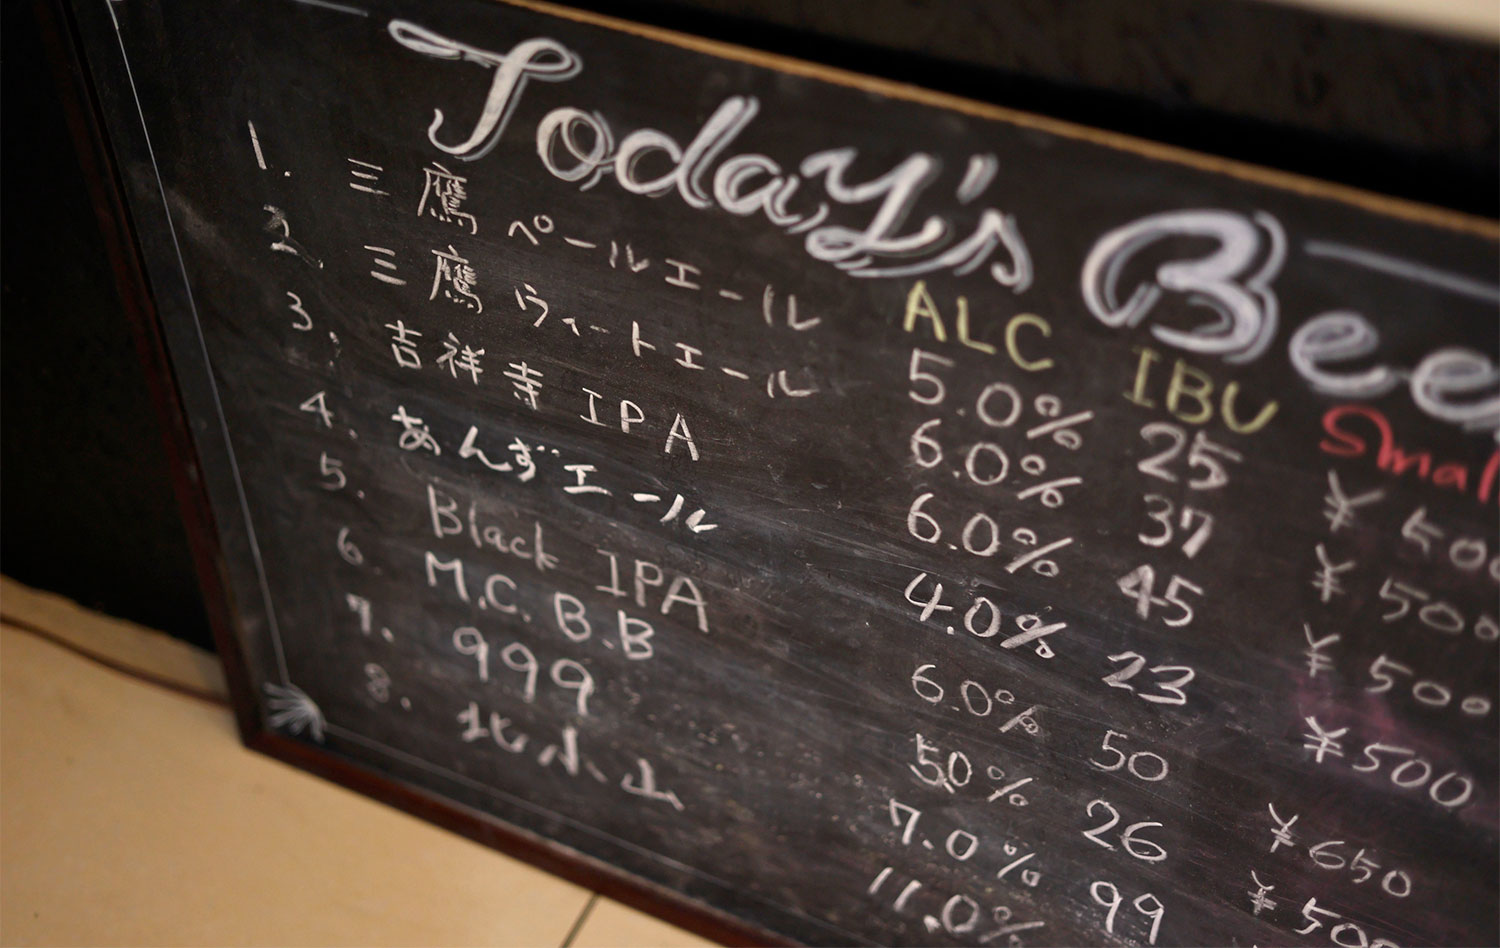 Today's Bee
ALC IBU Small
1. 三鷹ペールエール 5.0% 25 ¥500
2. 三鷹ウィートエール 6.0% 37 ¥500
3. 吉祥寺 IPA 6.0% 45 ¥500
4. あんずエール 4.0% 23 ¥500
5. Black IPA 6.0% 50 ¥650
6. M.C.B.B 5.0% 26 ¥500
7. 999 7.0% 99
8. 北小山 11.0%